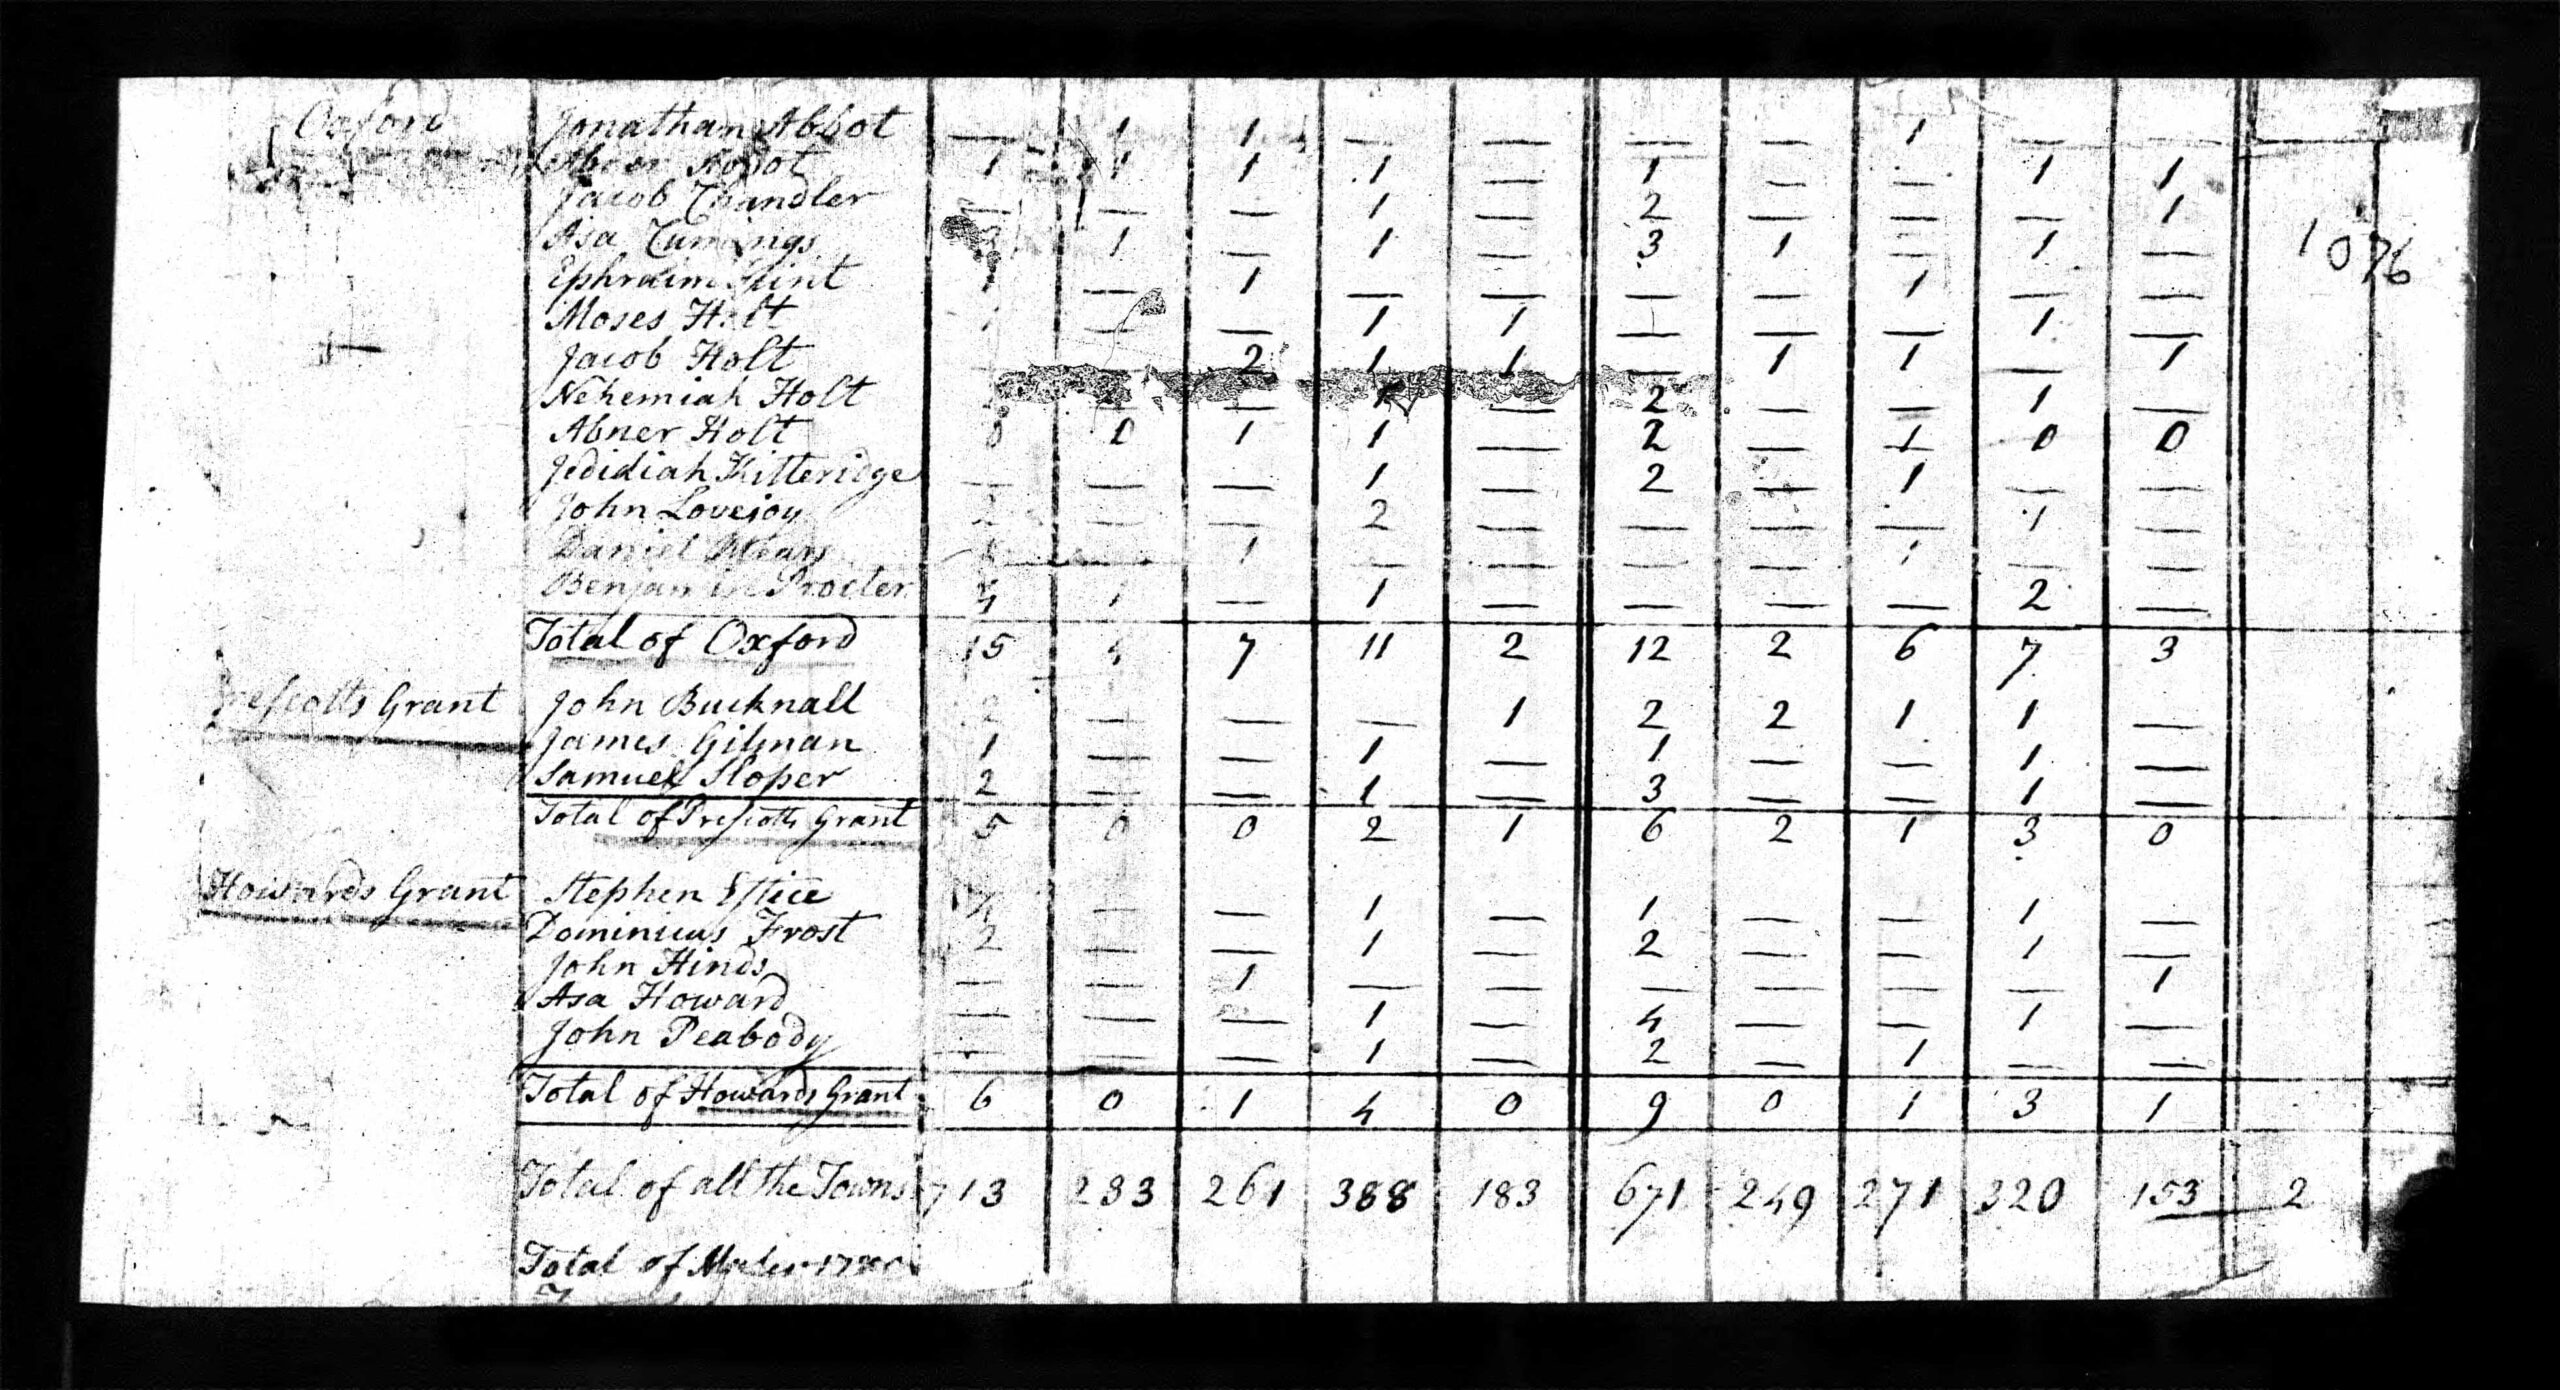 Oxford Jonathan Abbot — 1 1 — — — — 1 — —
Abbot 1 1 1 1 — 1 — — 1 1
Jacob Chandler — — — 1 — 2 — — — 1
Asa Cummings 1 — 1 — 3 1 — 1 —
Ephraim Flint 1 — 1 — — — — 1 — —
1076
Moses Holt — — 1 1 — — — 1 —
Jacob Holt 2 1 1 — 1 1 — 1
Nehemiah Holt — 1 — 2 — — 1 —
Abner Holt 0 0 1 1 — 2 — 1 0 0
Jedidiah Kitteridge — — — 1 — 2 — 1 — —
John Lovejoy — — 2 — — — — 1 —
Daniel Mears 1 — — — — 1 — —
Benjamin Procter 4 1 — 1 — — — — 2 —
Total of Oxford 15 4 7 11 2 12 2 6 7 3
Grant John Bucknall 2 — — — 1 2 2 1 1 —
James Gilman 1 — — 1 — 1 — — 1 —
Samuel Sloper 2 — — 1 — 3 — — 1 —
Total of Prescotts Grant 5 0 0 2 1 6 2 1 3 0
Howards Grant Stephen Estice 4 — — 1 — 1 — — 1 —
Dominicus Frost 2 — — 1 — 2 — — 1 —
John Hinds — — 1 — — — — — — 1
Asa Howard — — — 1 — 4 — — 1 —
John Peabody — — — 1 — 2 — 1 — —
Total of Howards Grant 6 0 1 4 0 9 0 1 3 1
Total of all the Towns 713 233 261 388 183 671 249 271 320 153 2
Total of